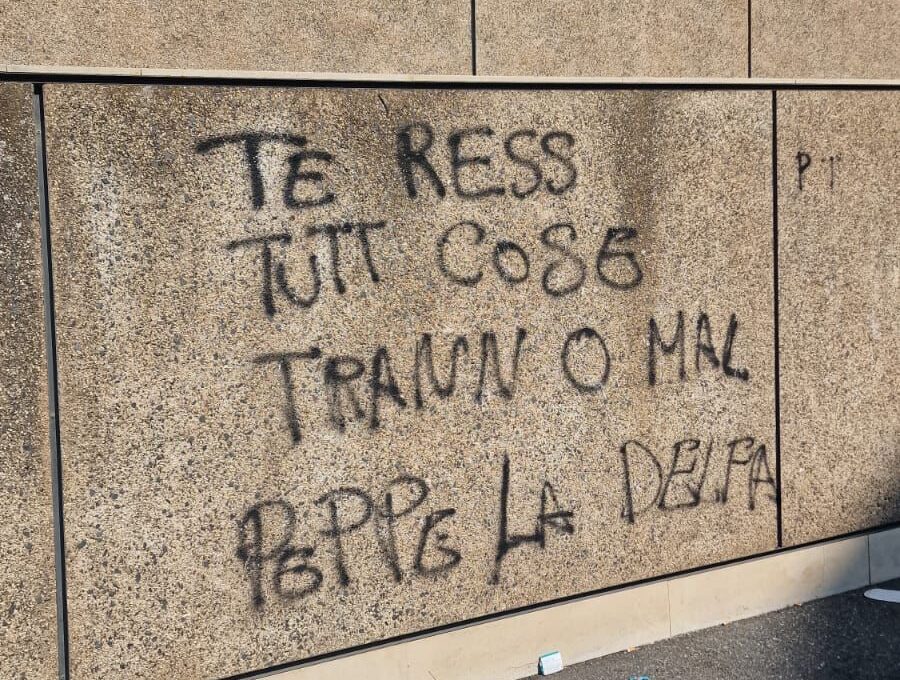 TE RESS
TUTT COSE
TRANN O MAL
PEPPE LA DELFA
P T